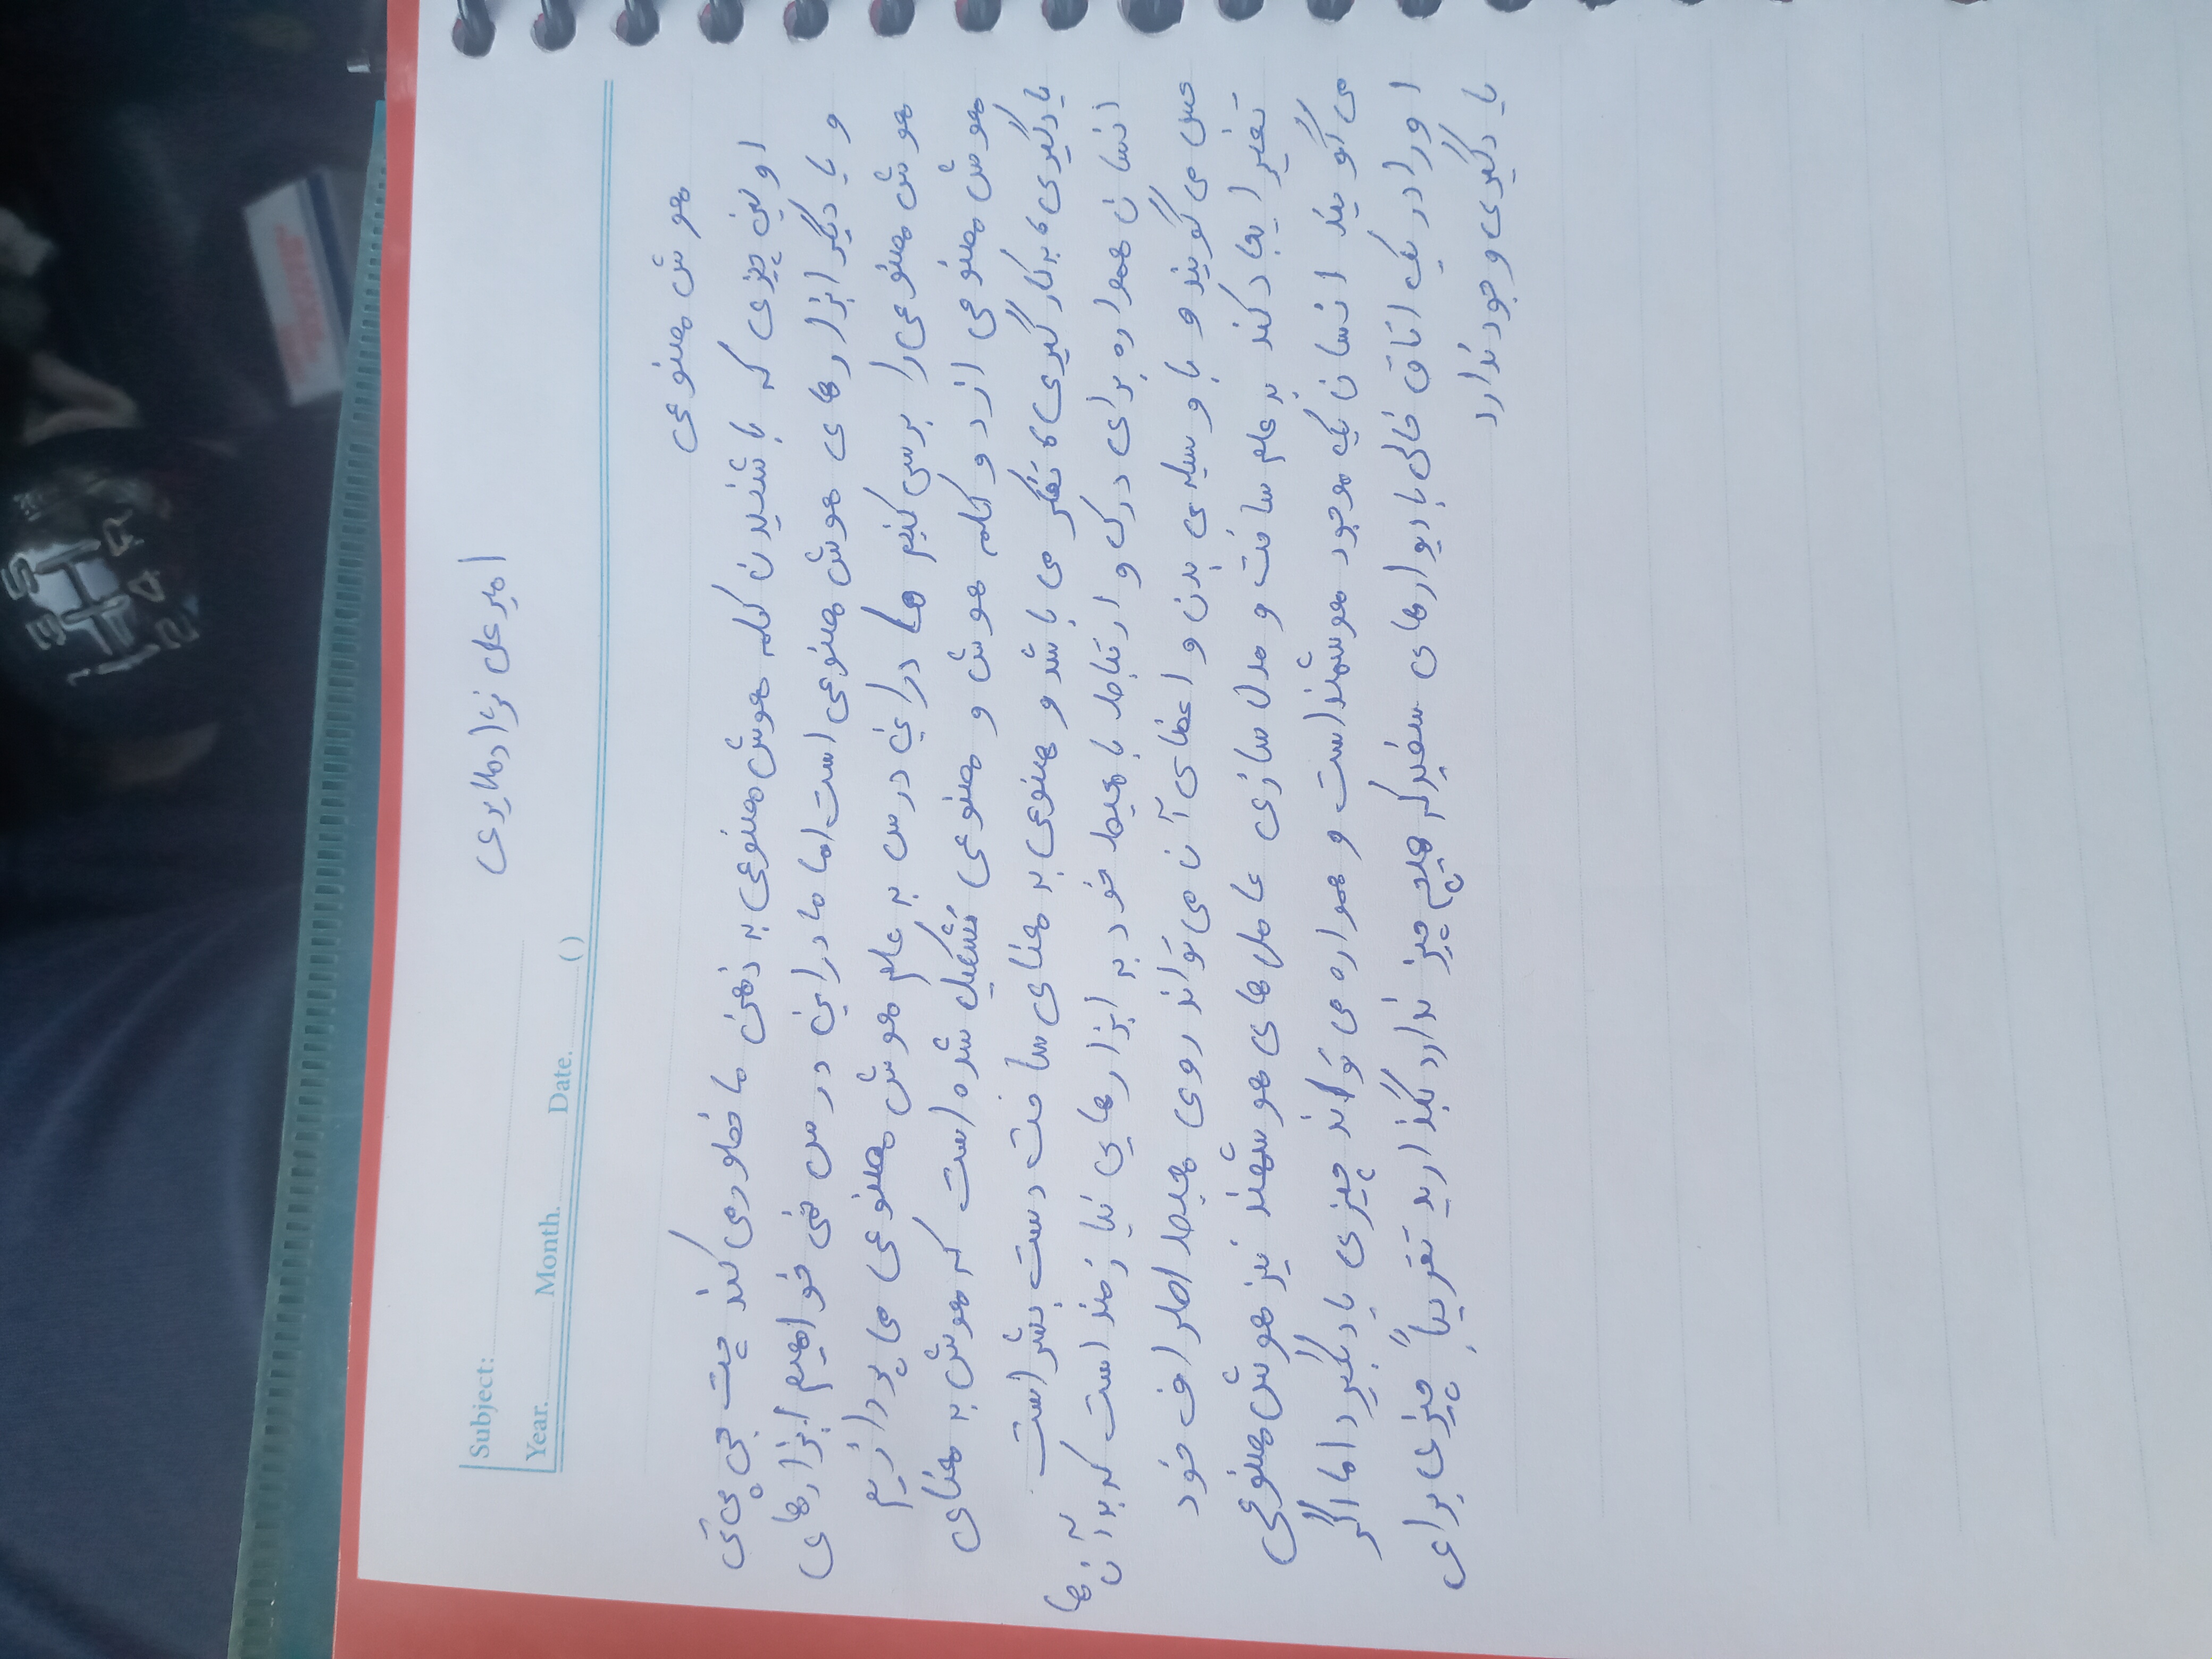 1 3 5
2 4 R
Subject:
امیرعلی نژادملایری
Year. Month. Date. ( )
هوش مصنوعی
اولین چیزی که با شنیدن کلمه هوش مصنوعی به ذهن ما خطور می کند چت جی پی تی
و یا دیگر ابزارهای هوش مصنوعی است اما ما در این درس نمی خواهیم ابزارهای
هوش مصنوعی را برسی کنیم ما در این درس به علم هوش مصنوعی می پردازیم
هوش مصنوعی از دو کلمه هوش و مصنوعی تشکیل شده است که هوش به معنای
یادگیری، به کارگیری، تفکر می باشد و مصنوعی به معنای ساخت دست بشر است
انسان همواره برای درک و ارتباط با محیط خود به ابزارهایی نیازمند است که به آن ها
حس می گویند و با وسیله ی بدن و اعضای آن می تواند روی محیط اطراف خود
تغیر ایجاد کند به علم ساخت و مدل سازی عامل های هوشمند نیز هوش مصنوعی
می گویند انسان یک موجود هوشمند است و همواره می تواند چیزی یاد بگیرد اما اگر
او را در یک اتاق خالی با دیوارهای سفید که هیچ چیز ندارد بگذارید تقریباً چیزی برای
یادگیری وجود ندارد